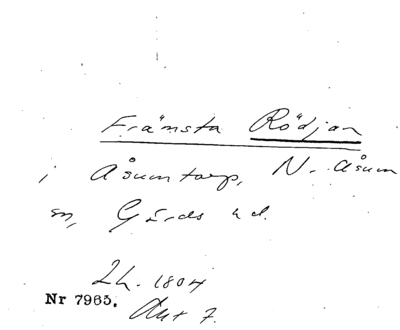 Främsta Rödjan
i Åsumtorp, N. Åsum
sn, Gärds hd.
Lh. 1804
Nr 7965.
Akt 7.